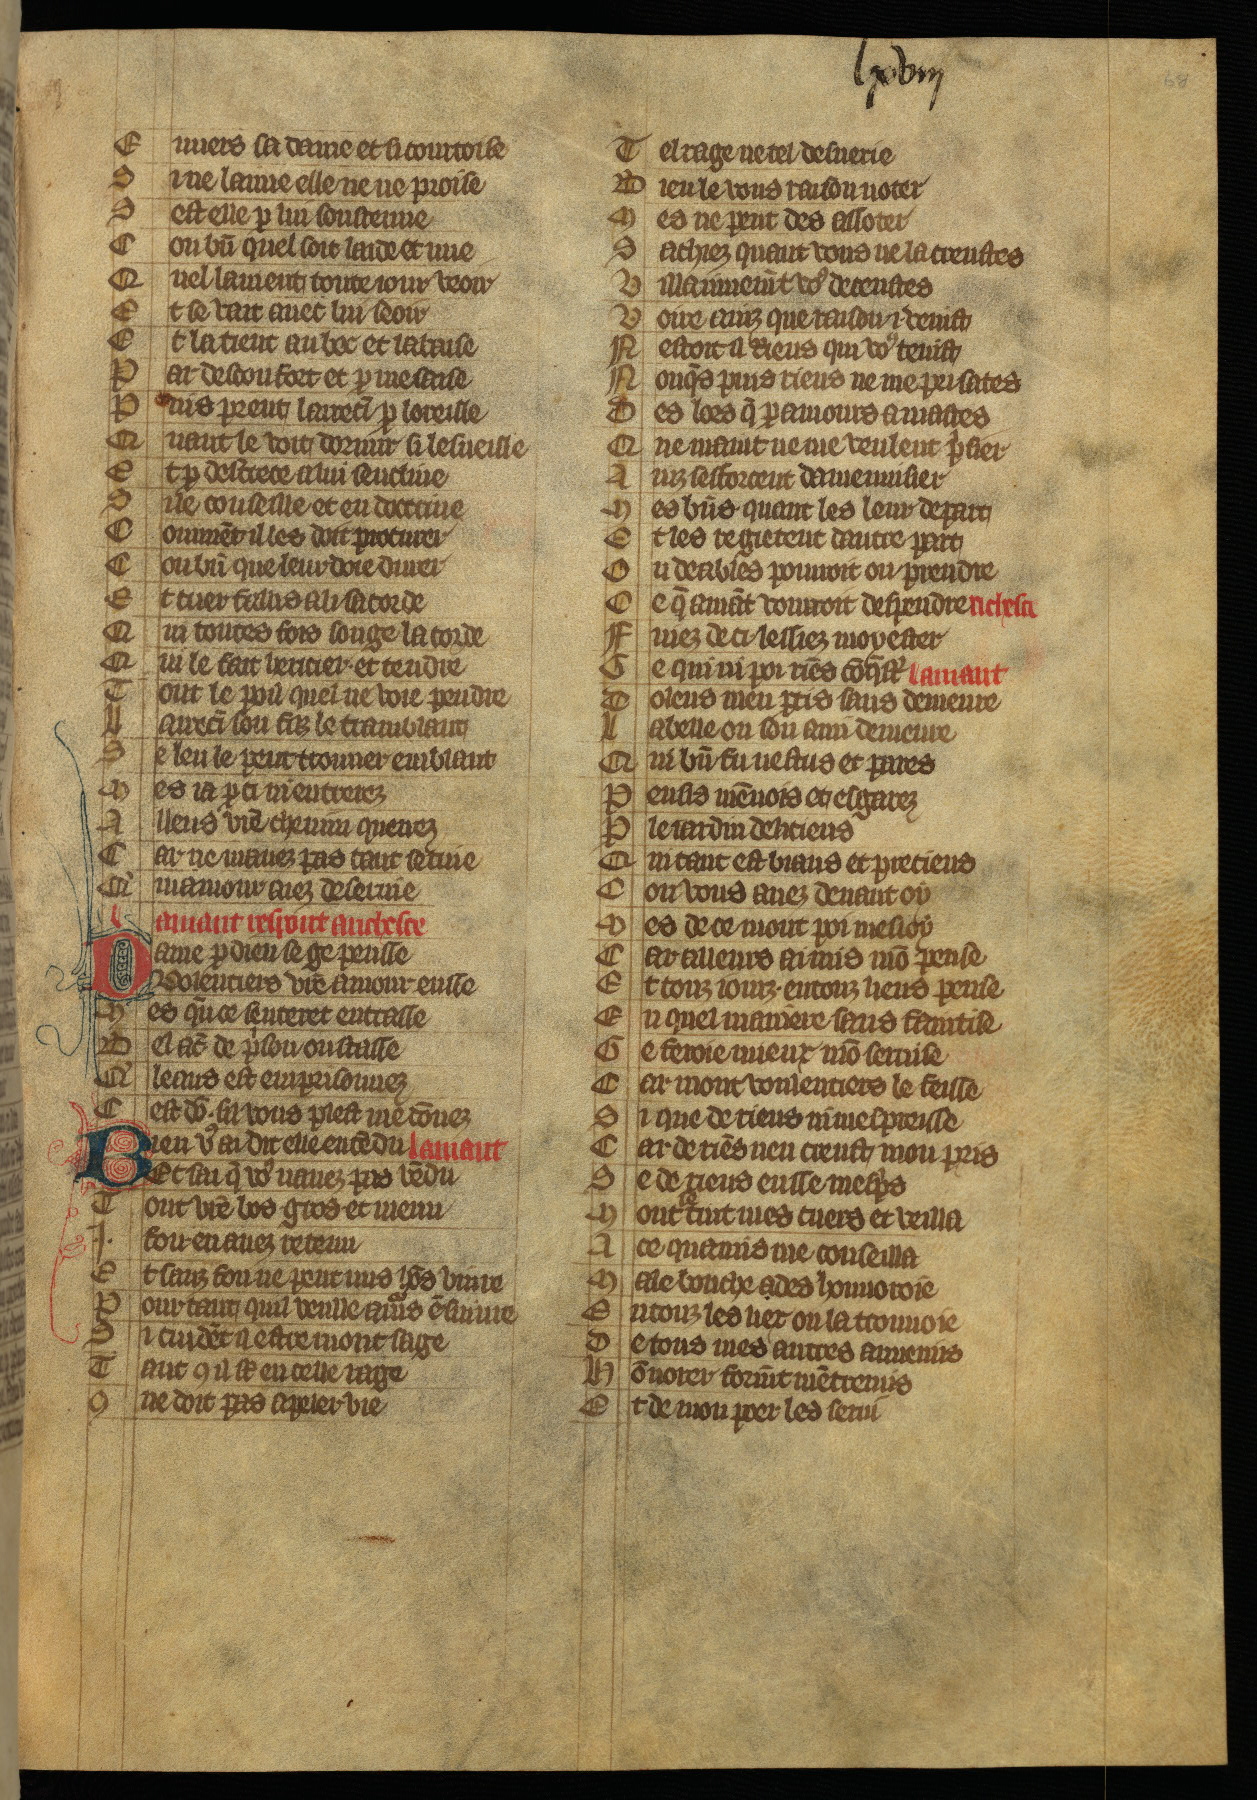 lxviij
68
E nuers sa dame et si courtoise
S i ne laime elle ne ne proise
S est elle p lui soustenue
C on bn̄ quel soit laide et nue
Q uel lament toute iour veoir
E t se vait auec lui seoir
E t la tient au bec et la baise
P ar desconfort et p mesaise
P uis prent larreci p loreille
Q uant le voit dormir si lesueille
E t p destrece a lui sencline
S i le conseille et endoctrine
C ommēt il les doit procurer
C on bn̄ que leur doie durer
E t cuer faillis a li sacorde
Q ui toutes fois songe la corde
Q ui le fait hericier et tendre
T out le poil quel ne voie pendre
L arreci son filz le tramblant
S e len le peut trouuer emblant
M es ia p ci nienterrez
A illeus vr̄e chemin querrez
C ar ne mauez pas tant seruie
Q maniour aiez deseruie
lamant respont a richesce
D ame p dieu se ge peusse
Volentiers vr̄e amour eusse
M es qū ce senteret entrasse
B el ac̄ de pson oustasse
Q leans est emprisonnez
C est dō sil vous plest me dōnez
B ien v9 ai dit elle entēdu lamant
Et sai q̄ vo9 nauez pas vēdu
T out vr̄e bos gros et menu
.I. fou en auez retenu
E t sanz fou ne peut nus hōs viure
P our tant quil veulle amˢ ēsuiure
S i cuidēt il estre mont sage
T ant 9 il st̄ en celle rage
9 ne doit pas apeler vie
T el rage ne tel desuerie
B ien le vous raison noter
M es ne peut des assoter
S achiez quant vous ne la creustes
V illainnemēt vo9 deceustes
V oire ainz que raison i venist
N estoit il riens qui vo9 tenist
N onqs puis riens ne me prisates
D es lors q̄ p amours amastes
Q ne maint ne me veulent psier
A inz sesforcent damenuisier
M es bn̄s quant les leur depart
E t les regietent dautre part
O u deables pourroit on prendre
C e q̄ amāt vourroit despendre richesce
F uiez de ci lessiez moy ester
G e qui ni poi riēs cōqr̄r lamant
D olens men ptis sans demeure
L abelle ou son ami demeure
Q ui bn̄ fu uestus et pares
P ensis mēnois et esgarez
P le iardin delicieus
Q ui tant est biaus et precieus
C on vous auez deuant oy
M es de ce mont poi mesioy
C ar ailleurs ai mis mō pense
E t touz iourz en touz lieus pense
E n quel maniere sans faintise
G e feroie mieux mō seruise
C ar mont voulentiers le feisse
S i que de riens ni mespreisse
C ar de riēs nen creust mon pris
S e de riens eusse mespˢ
M out se tint mes cuers et veilla
A ce quamis me conseilla
M ale bouche ades honnoroie
E n touz les liex ou la trouuoie
D e tous mes autres annemis
H ōnorer formēt mētremis
E t de mon poer les serui